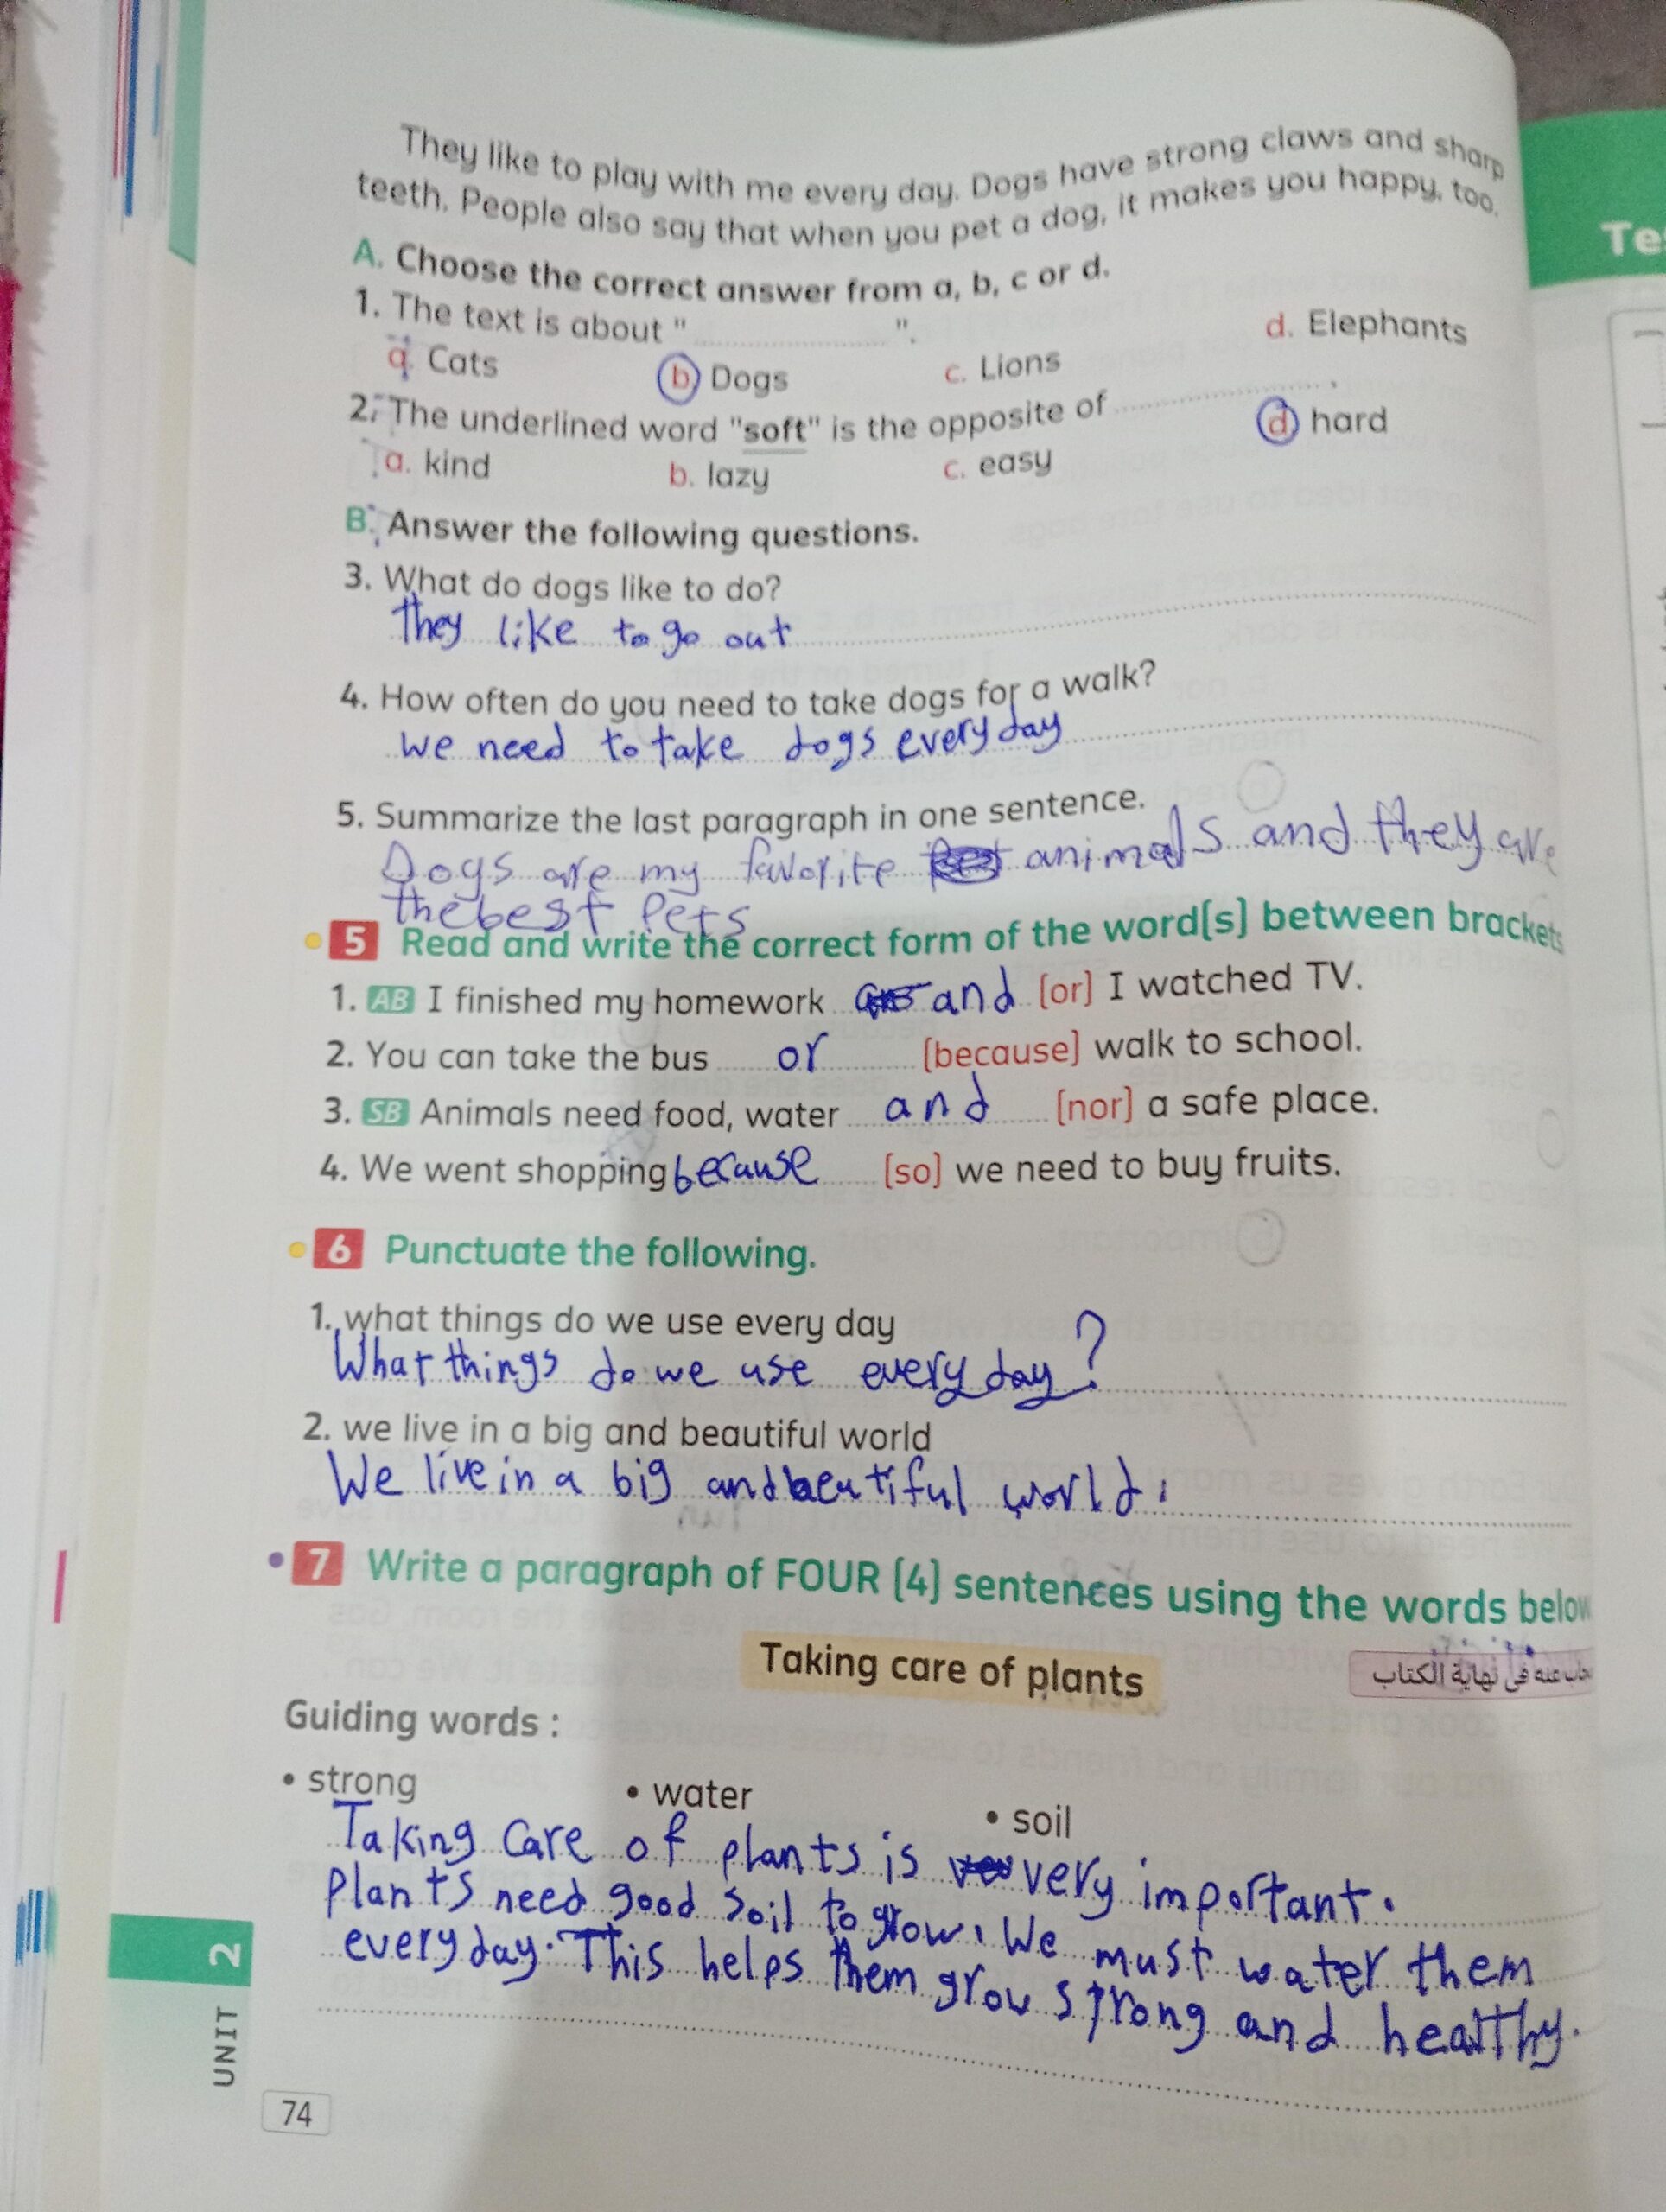 They like to play with me every day. Dogs have strong claws and sharp
teeth. People also say that when you pet a dog, it makes you happy, too.
Te
A. Choose the correct answer from a, b, c or d.
1. The text is about " ".
a. Cats b Dogs c. Lions d. Elephants
2. The underlined word "soft" is the opposite of
a. kind b. lazy c. easy d hard
B. Answer the following questions.
3. What do dogs like to do?
They like to go out
4. How often do you need to take dogs for a walk?
we need to take dogs every day
5. Summarize the last paragraph in one sentence.
Dogs are my favorite animals and they are
the best Pets
5 Read and write the correct form of the word(s) between brackets
1. AB I finished my homework and (or) I watched TV.
2. You can take the bus or (because) walk to school.
3. SB Animals need food, water and (nor) a safe place.
4. We went shopping because (so) we need to buy fruits.
6 Punctuate the following.
1. what things do we use every day
What things do we use every day?
2. we live in a big and beautiful world
We live in a big and beautiful world.
7 Write a paragraph of FOUR (4) sentences using the words below
Taking care of plants
عنه في نهاية الكتاب
Guiding words :
• strong • water • soil
Taking Care of plants is very important.
Plants need good soil to grow. We must water them
every day. This helps them grow strong and healthy.
UNIT 2
74